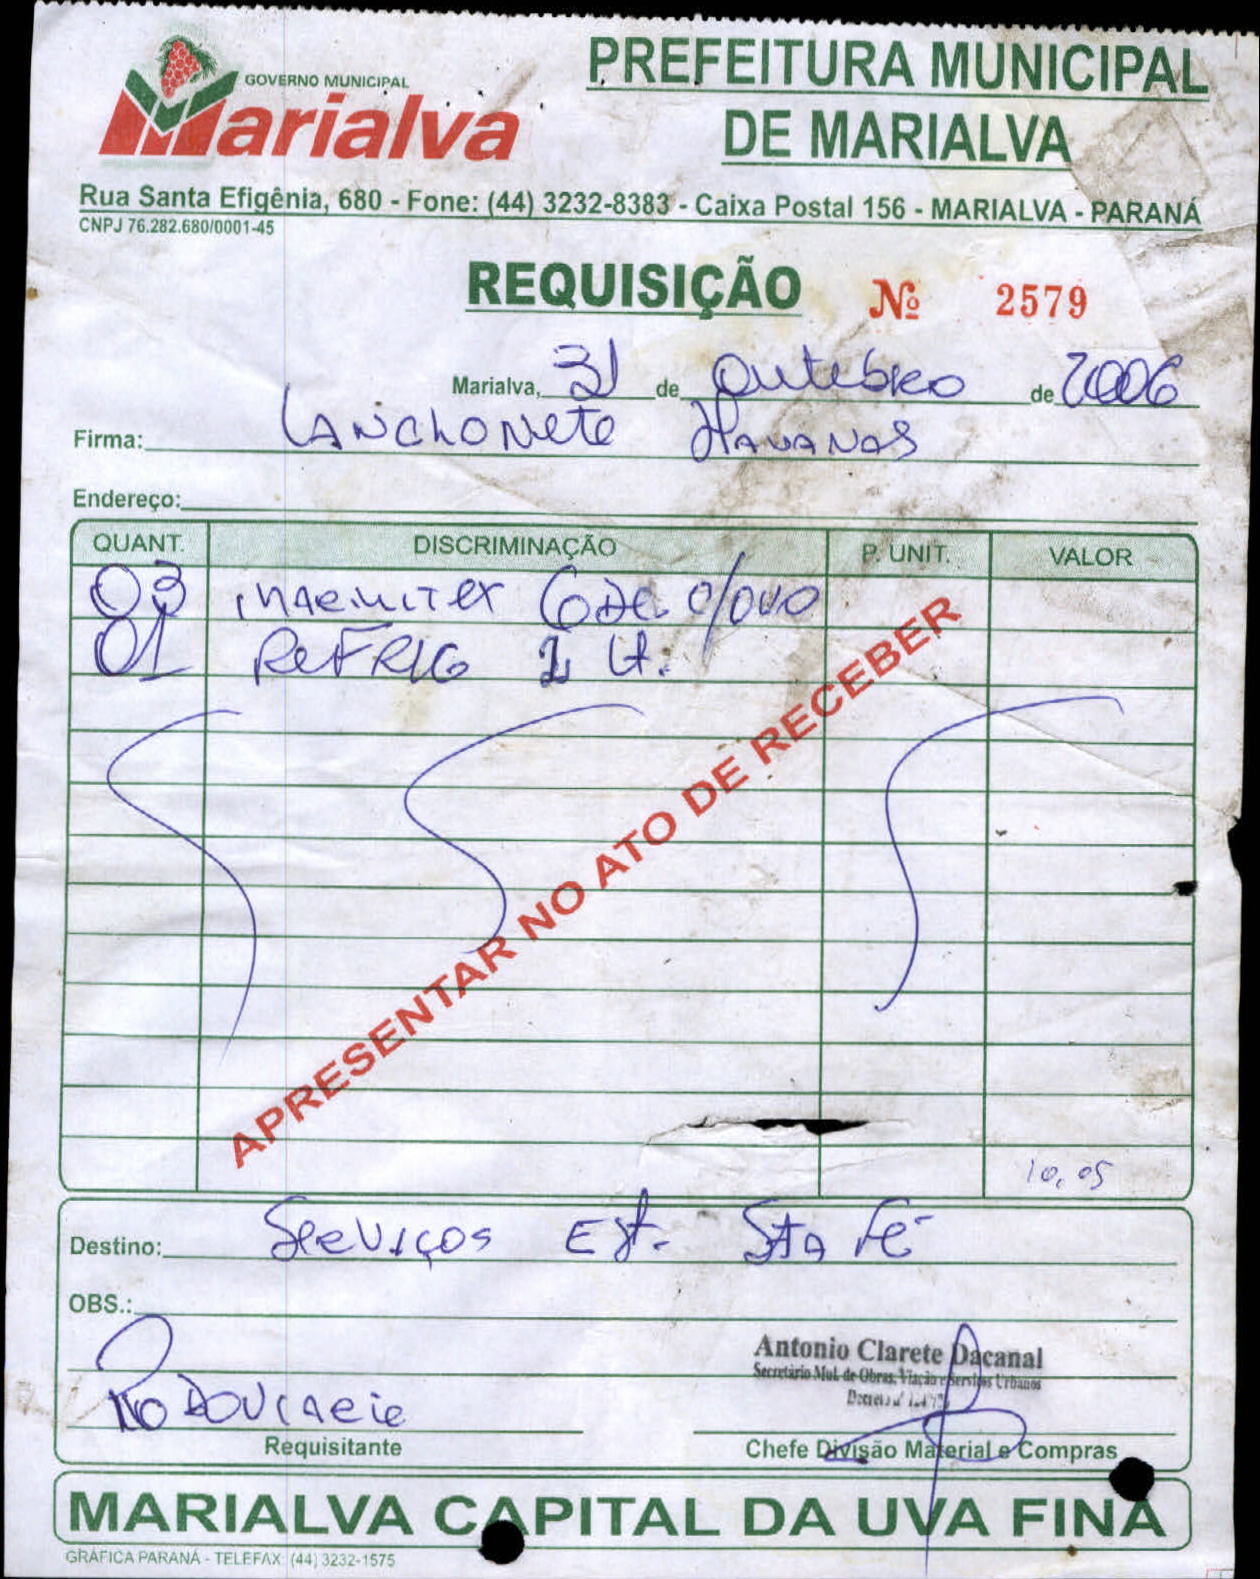 GOVERNO MUNICIPAL
Marialva
PREFEITURA MUNICIPAL
DE MARIALVA
Rua Santa Efigênia, 680 - Fone: (44) 3232-8383 - Caixa Postal 156 - MARIALVA - PARANÁ
CNPJ 76.282.680/0001-45
REQUISIÇÃO Nº 2579
Marialva, 31 de Outubro de 2006
Firma: LANCHONETE HAVANAS
Endereço:
QUANT. DISCRIMINAÇÃO P. UNIT. VALOR
03 MARMITEX c/ovo
01 REFRIG 2 Lt.
APRESENTAR NO ATO DE RECEBER
10,05
Destino: Serviços Est. Sta Fé
OBS.:
Antonio Clarete Dacanal
Secretário Mul. de Obras, Viação e Serviços Urbanos
Requisitante
Chefe Divisão Material e Compras
MARIALVA CAPITAL DA UVA FINA
GRÁFICA PARANÁ - TELEFAX: (44) 3232-1575